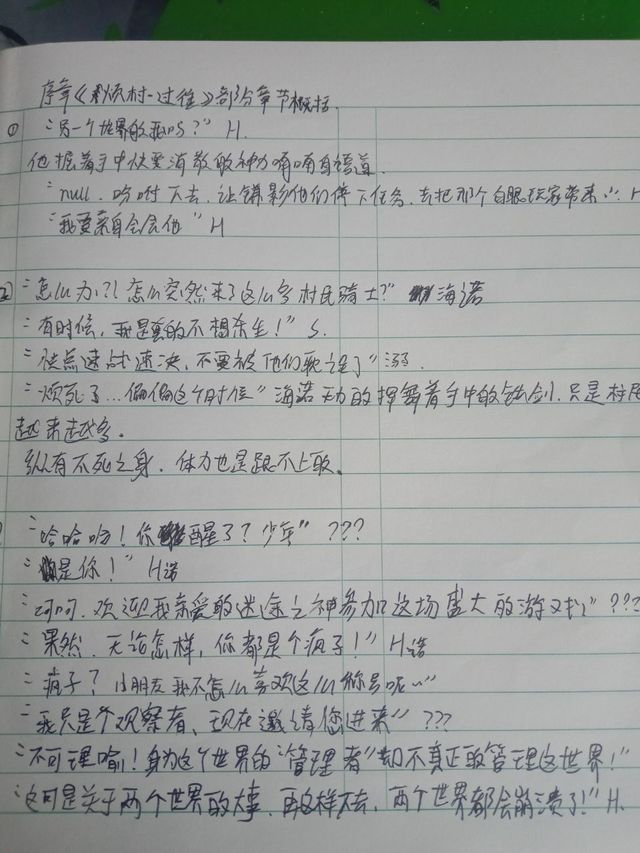 序章《烦村-过往》部分章节概括.
① “另一个世界的我吗?” H.
他握着手中快要消散的神力喃喃自语道.
“null. 吩咐下去. 让镰影他们停下任务. 去把那个白眼玩家带来”. H
“我要亲自会会他” H
② “怎么办?! 怎么突然来了这么多村民骑士?” 海诺
“有时候, 我是真的不想杀生!” S.
“快点速战速决, 不要被他们耽误了” 溺.
“烦死了...偏偏这个时候” 海诺无力的挥舞着手中的铁剑. 只是村民
越来越多.
纵有不死之身. 体力也是跟不上取.
“哈哈哈! 你醒了? 少年” ???
“是你!” H诺
“呵呵. 欢迎我亲爱的迷途之神参加这场盛大的游戏” ???
“果然. 无论怎样, 你都是个疯子!” H诺
“疯子? 小朋友我不怎么喜欢这么称呼呢…”
“我只是个观察者、现在邀请您进来” ???
“不可理喻! 身为这个世界的“管理者”却不真正的管理这世界!”
“这可是关于两个世界的大事. 再这样下去. 两个世界都会崩溃了!” H.